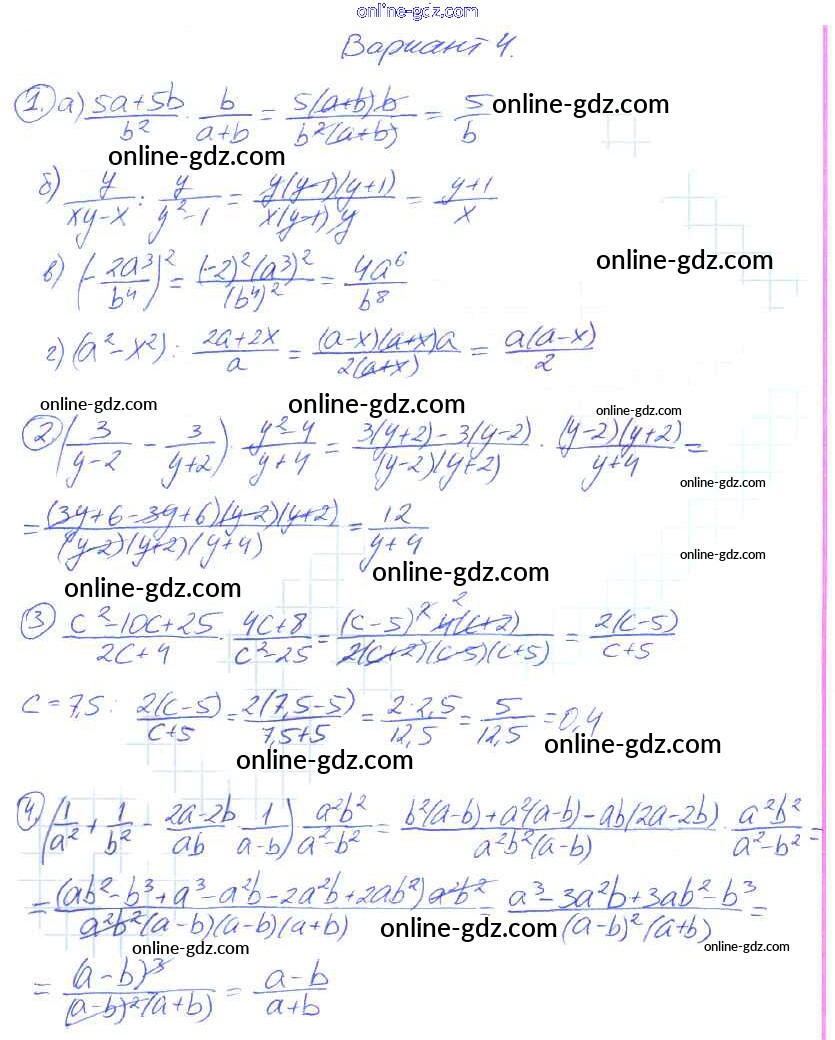 online-gdz.com
Вариант 4.
1. а) (5a+5b)/b² · b/(a+b) = 5(a+b)b/(b²(a+b)) = 5/b online-gdz.com
online-gdz.com
б) y/(xy-x) : y/(y²-1) = y(y-1)(y+1)/(x(y-1)y) = (y+1)/x
в) (-2a³/b⁴)² = (-2)²(a³)²/(b⁴)² = 4a⁶/b⁸ online-gdz.com
г) (a²-x²) : (2a+2x)/a = (a-x)(a+x)a/(2(a+x)) = a(a-x)/2
online-gdz.com online-gdz.com online-gdz.com
2. (3/(y-2) - 3/(y+2)) · (y²-4)/(y+4) = (3(y+2)-3(y-2))/((y-2)(y+2)) · (y-2)(y+2)/(y+4) =
online-gdz.com
= (3y+6-3y+6)(y-2)(y+2)/((y-2)(y+2)(y+4)) = 12/(y+4)
online-gdz.com
online-gdz.com online-gdz.com
3 (c²-10c+25)/(2c+4) · (4c+8)/(c²-25) = (c-5)² 4(c+2)/(2(c+2)(c-5)(c+5)) = 2(c-5)/(c+5)
c=7,5: 2(c-5)/(c+5) = 2(7,5-5)/(7,5+5) = 2·2,5/12,5 = 5/12,5 = 0,4
online-gdz.com online-gdz.com
4. (1/a² + 1/b² - (2a-2b)/ab · 1/(a-b)) a²b²/(a²-b²) = (b²(a-b)+a²(a-b)-ab(2a-2b))/(a²b²(a-b)) · a²b²/(a²-b²) =
= (ab²-b³+a³-a²b-2a²b+2ab²)a²b²/(a²b²(a-b)(a-b)(a+b)) = (a³-3a²b+3ab²-b³)/((a-b)²(a+b)) =
online-gdz.com
online-gdz.com online-gdz.com
= (a-b)³/((a-b)²(a+b)) = (a-b)/(a+b)